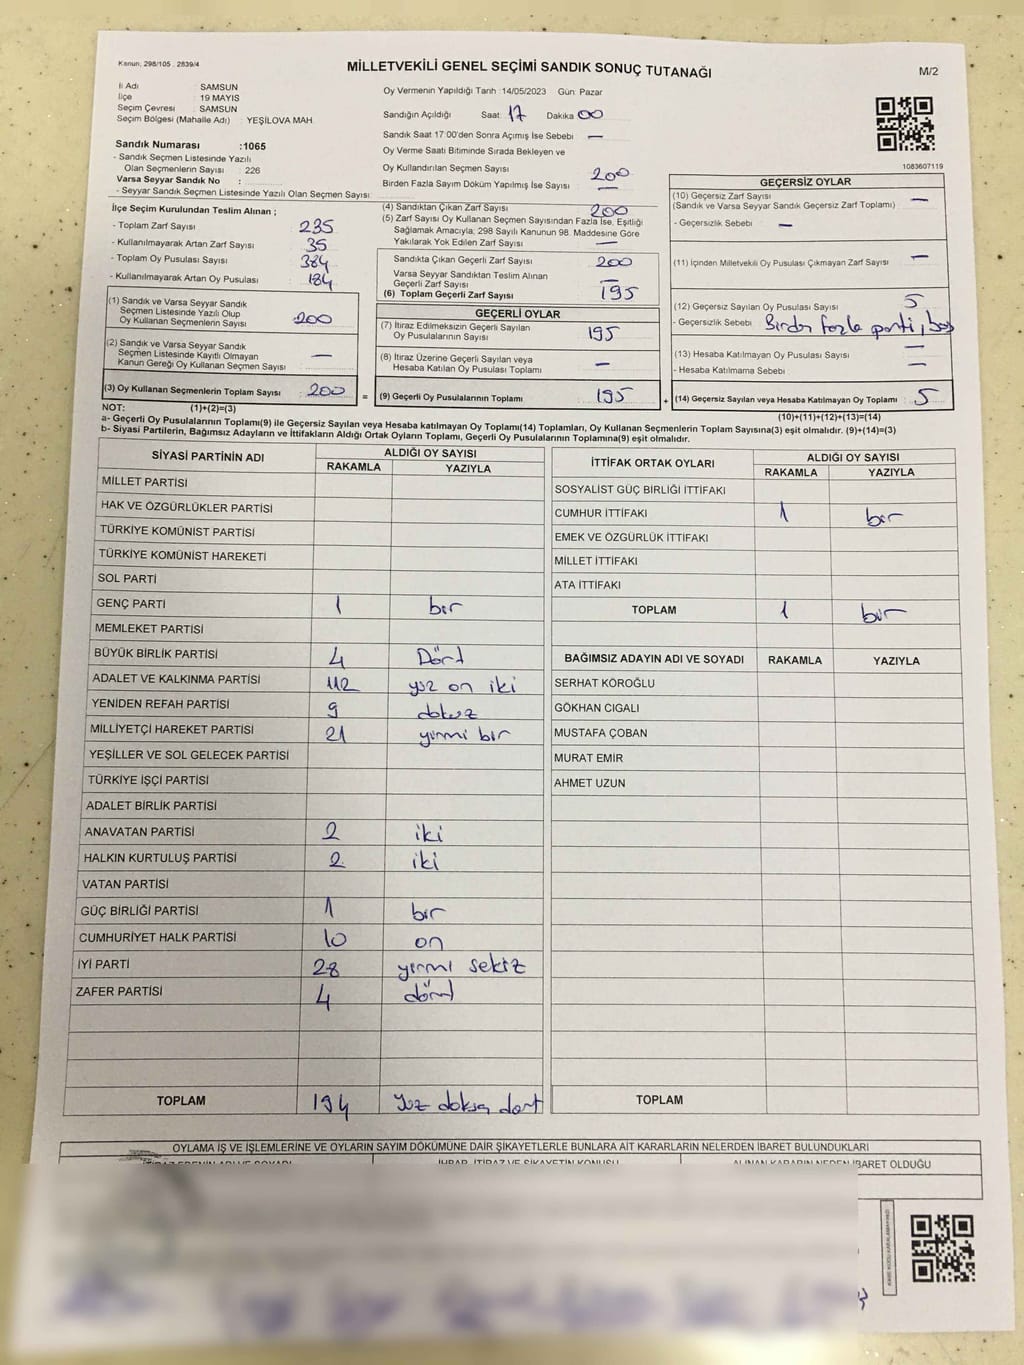 Kanun, 298/105 , 2839/4
MİLLETVEKİLİ GENEL SEÇİMİ SANDIK SONUÇ TUTANAĞI
M/2
İl Adı : SAMSUN
İlçe : 19 MAYIS
Seçim Çevresi : SAMSUN
Seçim Bölgesi (Mahalle Adı) : YEŞİLOVA MAH.
Sandık Numarası :1065
- Sandık Seçmen Listesinde Yazılı
Olan Seçmenlerin Sayısı : 226
Varsa Seyyar Sandık No :
- Seyyar Sandık Seçmen Listesinde Yazılı Olan Seçmen Sayısı:
İlçe Seçim Kurulundan Teslim Alınan ;
- Toplam Zarf Sayısı 235
- Kullanılmayarak Artan Zarf Sayısı 35
- Toplam Oy Pusulası Sayısı 384
- Kullanılmayarak Artan Oy Pusulası 184
(1) Sandık ve Varsa Seyyar Sandık
Seçmen Listesinde Yazılı Olup
Oy Kullanan Seçmenlerin Sayısı 200
(2) Sandık ve Varsa Seyyar Sandık
Seçmen Listesinde Kayıtlı Olmayan
Kanun Gereği Oy Kullanan Seçmen Sayısı —
(3) Oy Kullanan Seçmenlerin Toplam Sayısı 200 =
Oy Vermenin Yapıldığı Tarih :14/05/2023 Gün: Pazar
Sandığın Açıldığı Saat: 17 Dakika 00
Sandık Saat 17:00'den Sonra Açılmış İse Sebebi —
Oy Verme Saati Bitiminde Sırada Bekleyen ve
Oy Kullandırılan Seçmen Sayısı 200
Birden Fazla Sayım Döküm Yapılmış İse Sayısı —
(4) Sandıktan Çıkan Zarf Sayısı 200
(5) Zarf Sayısı Oy Kullanan Seçmen Sayısından Fazla İse, Eşitliği
Sağlamak Amacıyla, 298 Sayılı Kanunun 98. Maddesine Göre
Yakılarak Yok Edilen Zarf Sayısı —
Sandıkta Çıkan Geçerli Zarf Sayısı 200
Varsa Seyyar Sandıktan Teslim Alınan
Geçerli Zarf Sayısı —
(6) Toplam Geçerli Zarf Sayısı 195
GEÇERLİ OYLAR
(7) İtiraz Edilmeksizin Geçerli Sayılan
Oy Pusulalarının Sayısı 195
(8) İtiraz Üzerine Geçerli Sayılan veya
Hesaba Katılan Oy Pusulası Toplamı —
(9) Geçerli Oy Pusulalarının Toplamı 195 +
1083607119
GEÇERSİZ OYLAR
(10) Geçersiz Zarf Sayısı
(Sandık ve Varsa Seyyar Sandık Geçersiz Zarf Toplamı) —
- Geçersizlik Sebebi —
(11) İçinden Milletvekili Oy Pusulası Çıkmayan Zarf Sayısı —
(12) Geçersiz Sayılan Oy Pusulası Sayısı 5
- Geçersizlik Sebebi Birden fazla parti, boş
(13) Hesaba Katılmayan Oy Pusulası Sayısı —
- Hesaba Katılmama Sebebi —
(14) Geçersiz Sayılan veya Hesaba Katılmayan Oy Toplamı 5
NOT: (1)+(2)=(3)
(10)+(11)+(12)+(13)=(14)
a- Geçerli Oy Pusulalarının Toplamı(9) ile Geçersiz Sayılan veya Hesaba katılmayan Oy Toplamı(14) Toplamları, Oy Kullanan Seçmenlerin Toplam Sayısına(3) eşit olmalıdır. (9)+(14)=(3)
b- Siyasi Partilerin, Bağımsız Adayların ve İttifakların Aldığı Ortak Oyların Toplamı, Geçerli Oy Pusulalarının Toplamına(9) eşit olmalıdır.
SİYASİ PARTİNİN ADI
ALDIĞI OY SAYISI
RAKAMLA YAZIYLA
MİLLET PARTİSİ
HAK VE ÖZGÜRLÜKLER PARTİSİ
TÜRKİYE KOMÜNİST PARTİSİ
TÜRKİYE KOMÜNİST HAREKETİ
SOL PARTİ
GENÇ PARTİ 1 bir
MEMLEKET PARTİSİ
BÜYÜK BİRLİK PARTİSİ 4 Dört
ADALET VE KALKINMA PARTİSİ 112 yüz on iki
YENİDEN REFAH PARTİSİ 9 dokuz
MİLLİYETÇİ HAREKET PARTİSİ 21 yirmi bir
YEŞİLLER VE SOL GELECEK PARTİSİ
TÜRKİYE İŞÇİ PARTİSİ
ADALET BİRLİK PARTİSİ
ANAVATAN PARTİSİ 2 iki
HALKIN KURTULUŞ PARTİSİ 2 iki
VATAN PARTİSİ
GÜÇ BİRLİĞİ PARTİSİ 1 bir
CUMHURİYET HALK PARTİSİ 10 on
İYİ PARTİ 28 yirmi sekiz
ZAFER PARTİSİ 4 dört
TOPLAM 194 Yüz doksan dört
İTTİFAK ORTAK OYLARI
ALDIĞI OY SAYISI
RAKAMLA YAZIYLA
SOSYALİST GÜÇ BİRLİĞİ İTTİFAKI
CUMHUR İTTİFAKI 1 bir
EMEK VE ÖZGÜRLÜK İTTİFAKI
MİLLET İTTİFAKI
ATA İTTİFAKI
TOPLAM 1 bir
BAĞIMSIZ ADAYIN ADI VE SOYADI RAKAMLA YAZIYLA
SERHAT KÖROĞLU
GÖKHAN CIGALI
MUSTAFA ÇOBAN
MURAT EMİR
AHMET UZUN
TOPLAM
OYLAMA İŞ VE İŞLEMLERİNE VE OYLARIN SAYIM DÖKÜMÜNE DAİR ŞİKAYETLERLE BUNLARA AİT KARARLARIN NELERDEN İBARET BULUNDUKLARI
İTİRAZ EDENİN ADI VE SOYADI İHBAR, İTİRAZ VE ŞİKAYETİN KONUSU ALINAN KARARIN NEDEN İBARET OLDUĞU